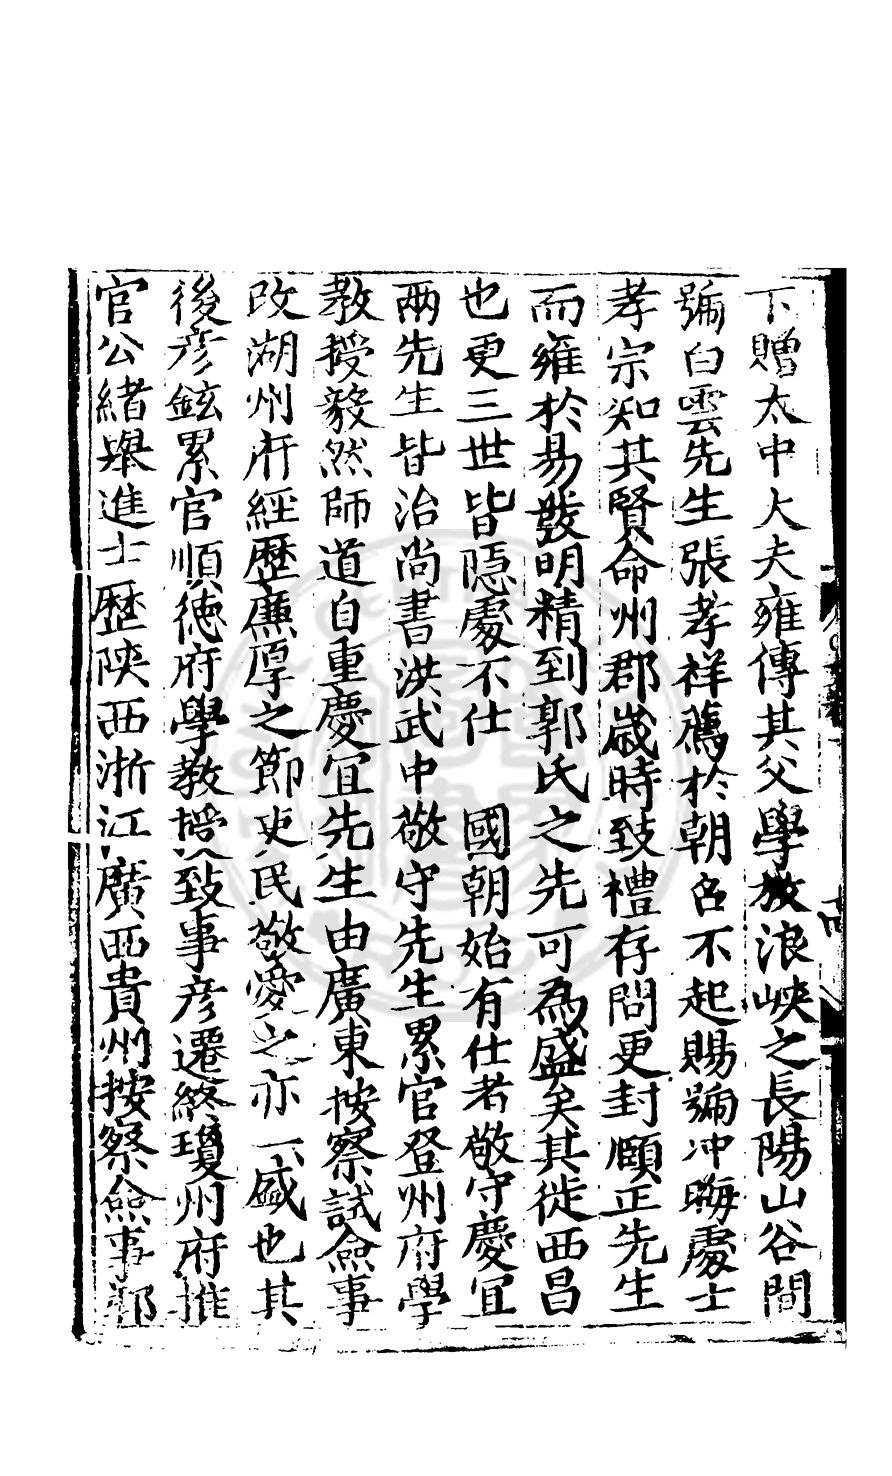 下贈太中大夫雍傳其父學放浪峽之長陽山谷間
號白雲先生張孝祥薦於朝召不起賜號冲晦處士
孝宗知其賢命州郡歲時致禮存問更封頤正先生
而雍於易發明精到郭氏之先可為盛矣其徙西昌
也更三世皆隱處不仕　國朝始有仕者敬守慶宜
兩先生皆治尚書洪武中敬守先生累官登州府學
教授毅然師道自重慶宜先生由廣東按察試僉事
改湖州府經歷廉厚之節吏民敬愛之亦一盛也其
後彦鉉累官順德府學教授致事彦遷終瓊州府推
官公緒舉進士歷陝西浙江廣西貴州按察僉事鄰